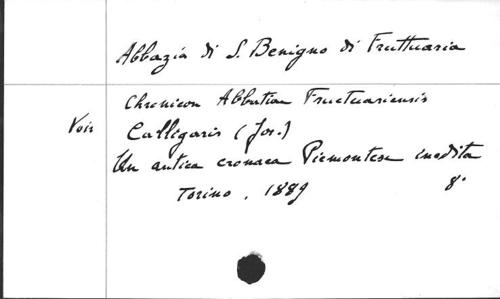 Abbazia di S. Benigno di Fruttuaria
Chronicon Abbatiae Fructuariensis
Voir Calligaris (Jos.)
Un antica cronaca Piemontese inedita
Torino, 1889 8°